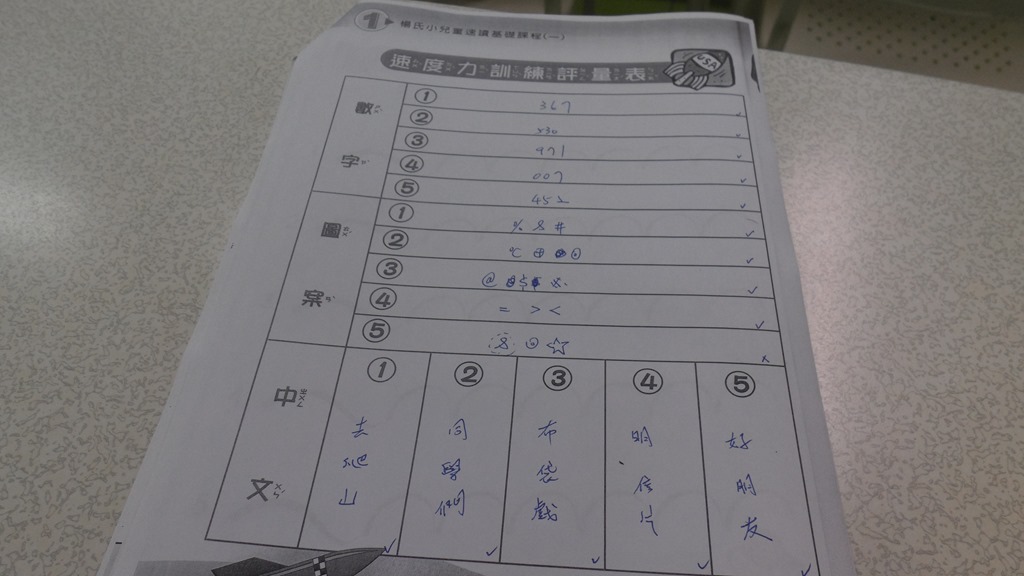 1 楊氏小兒童速讀基礎課程(一)
速度力訓練評量表
USA
數字
① 367
② 530
③ 971
④ 007
⑤ 452
圖案
① % & #
② ℃ ⊕
③ @ $ &
④ = > <
⑤ & ☆
中文
① 去爬山
② 同學們
③ 布袋戲
④ 明信片
⑤ 好朋友